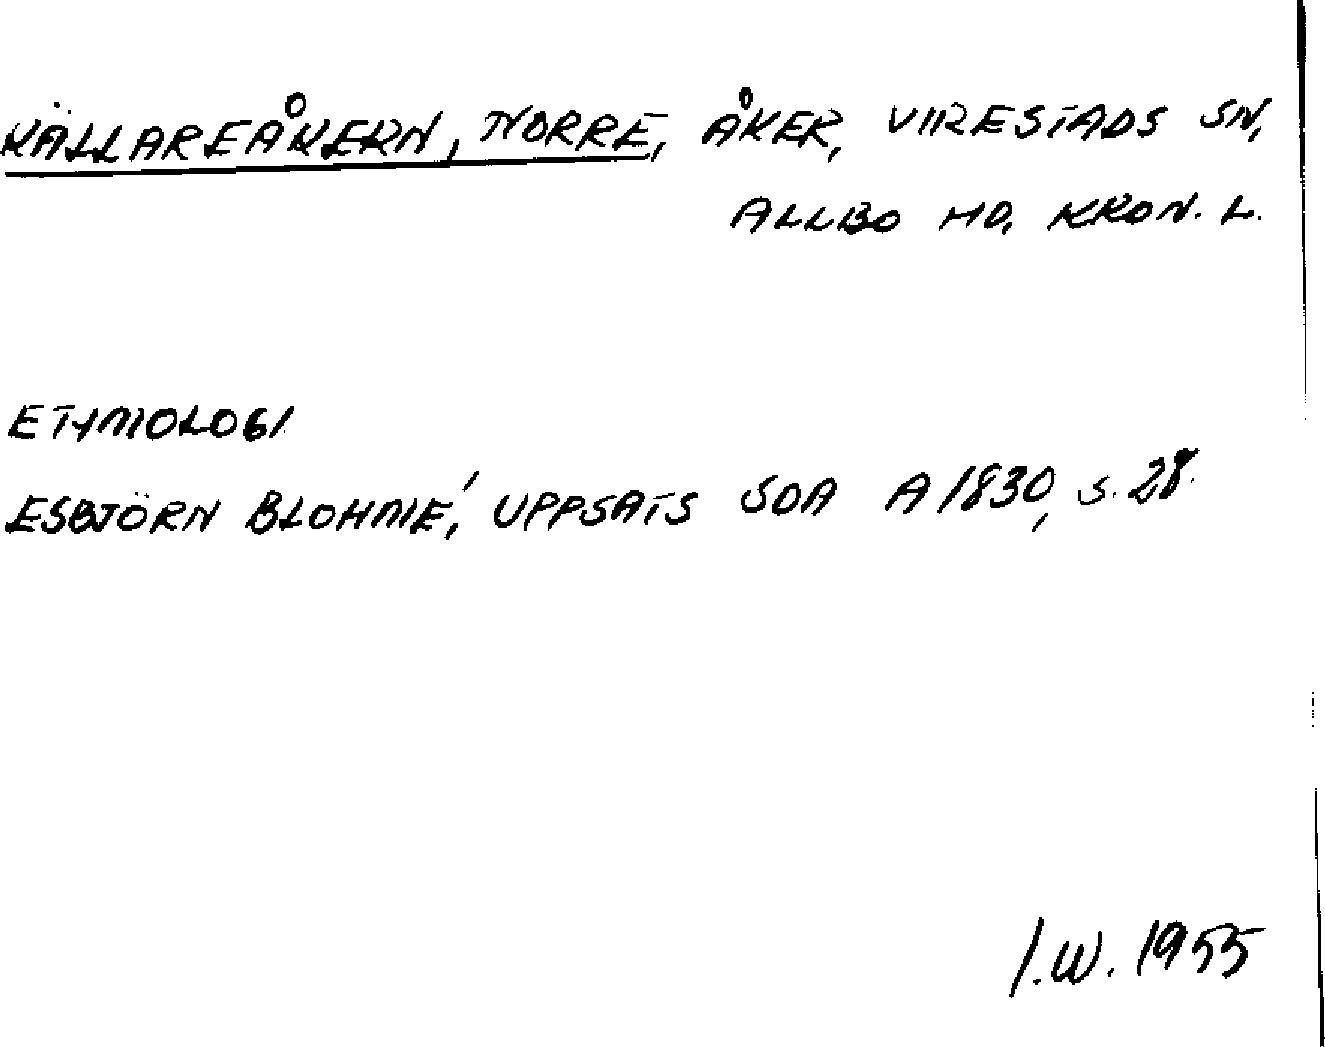 KÄLLAREÅKERN, NORRE, ÅKER, VIRESTADS SN,
ALLBO HD, KRON. L.
ETYMOLOGI
ESBJÖRN BLOHMÉ, UPPSATS SOA A 1830, S. 28.
I.W. 1955